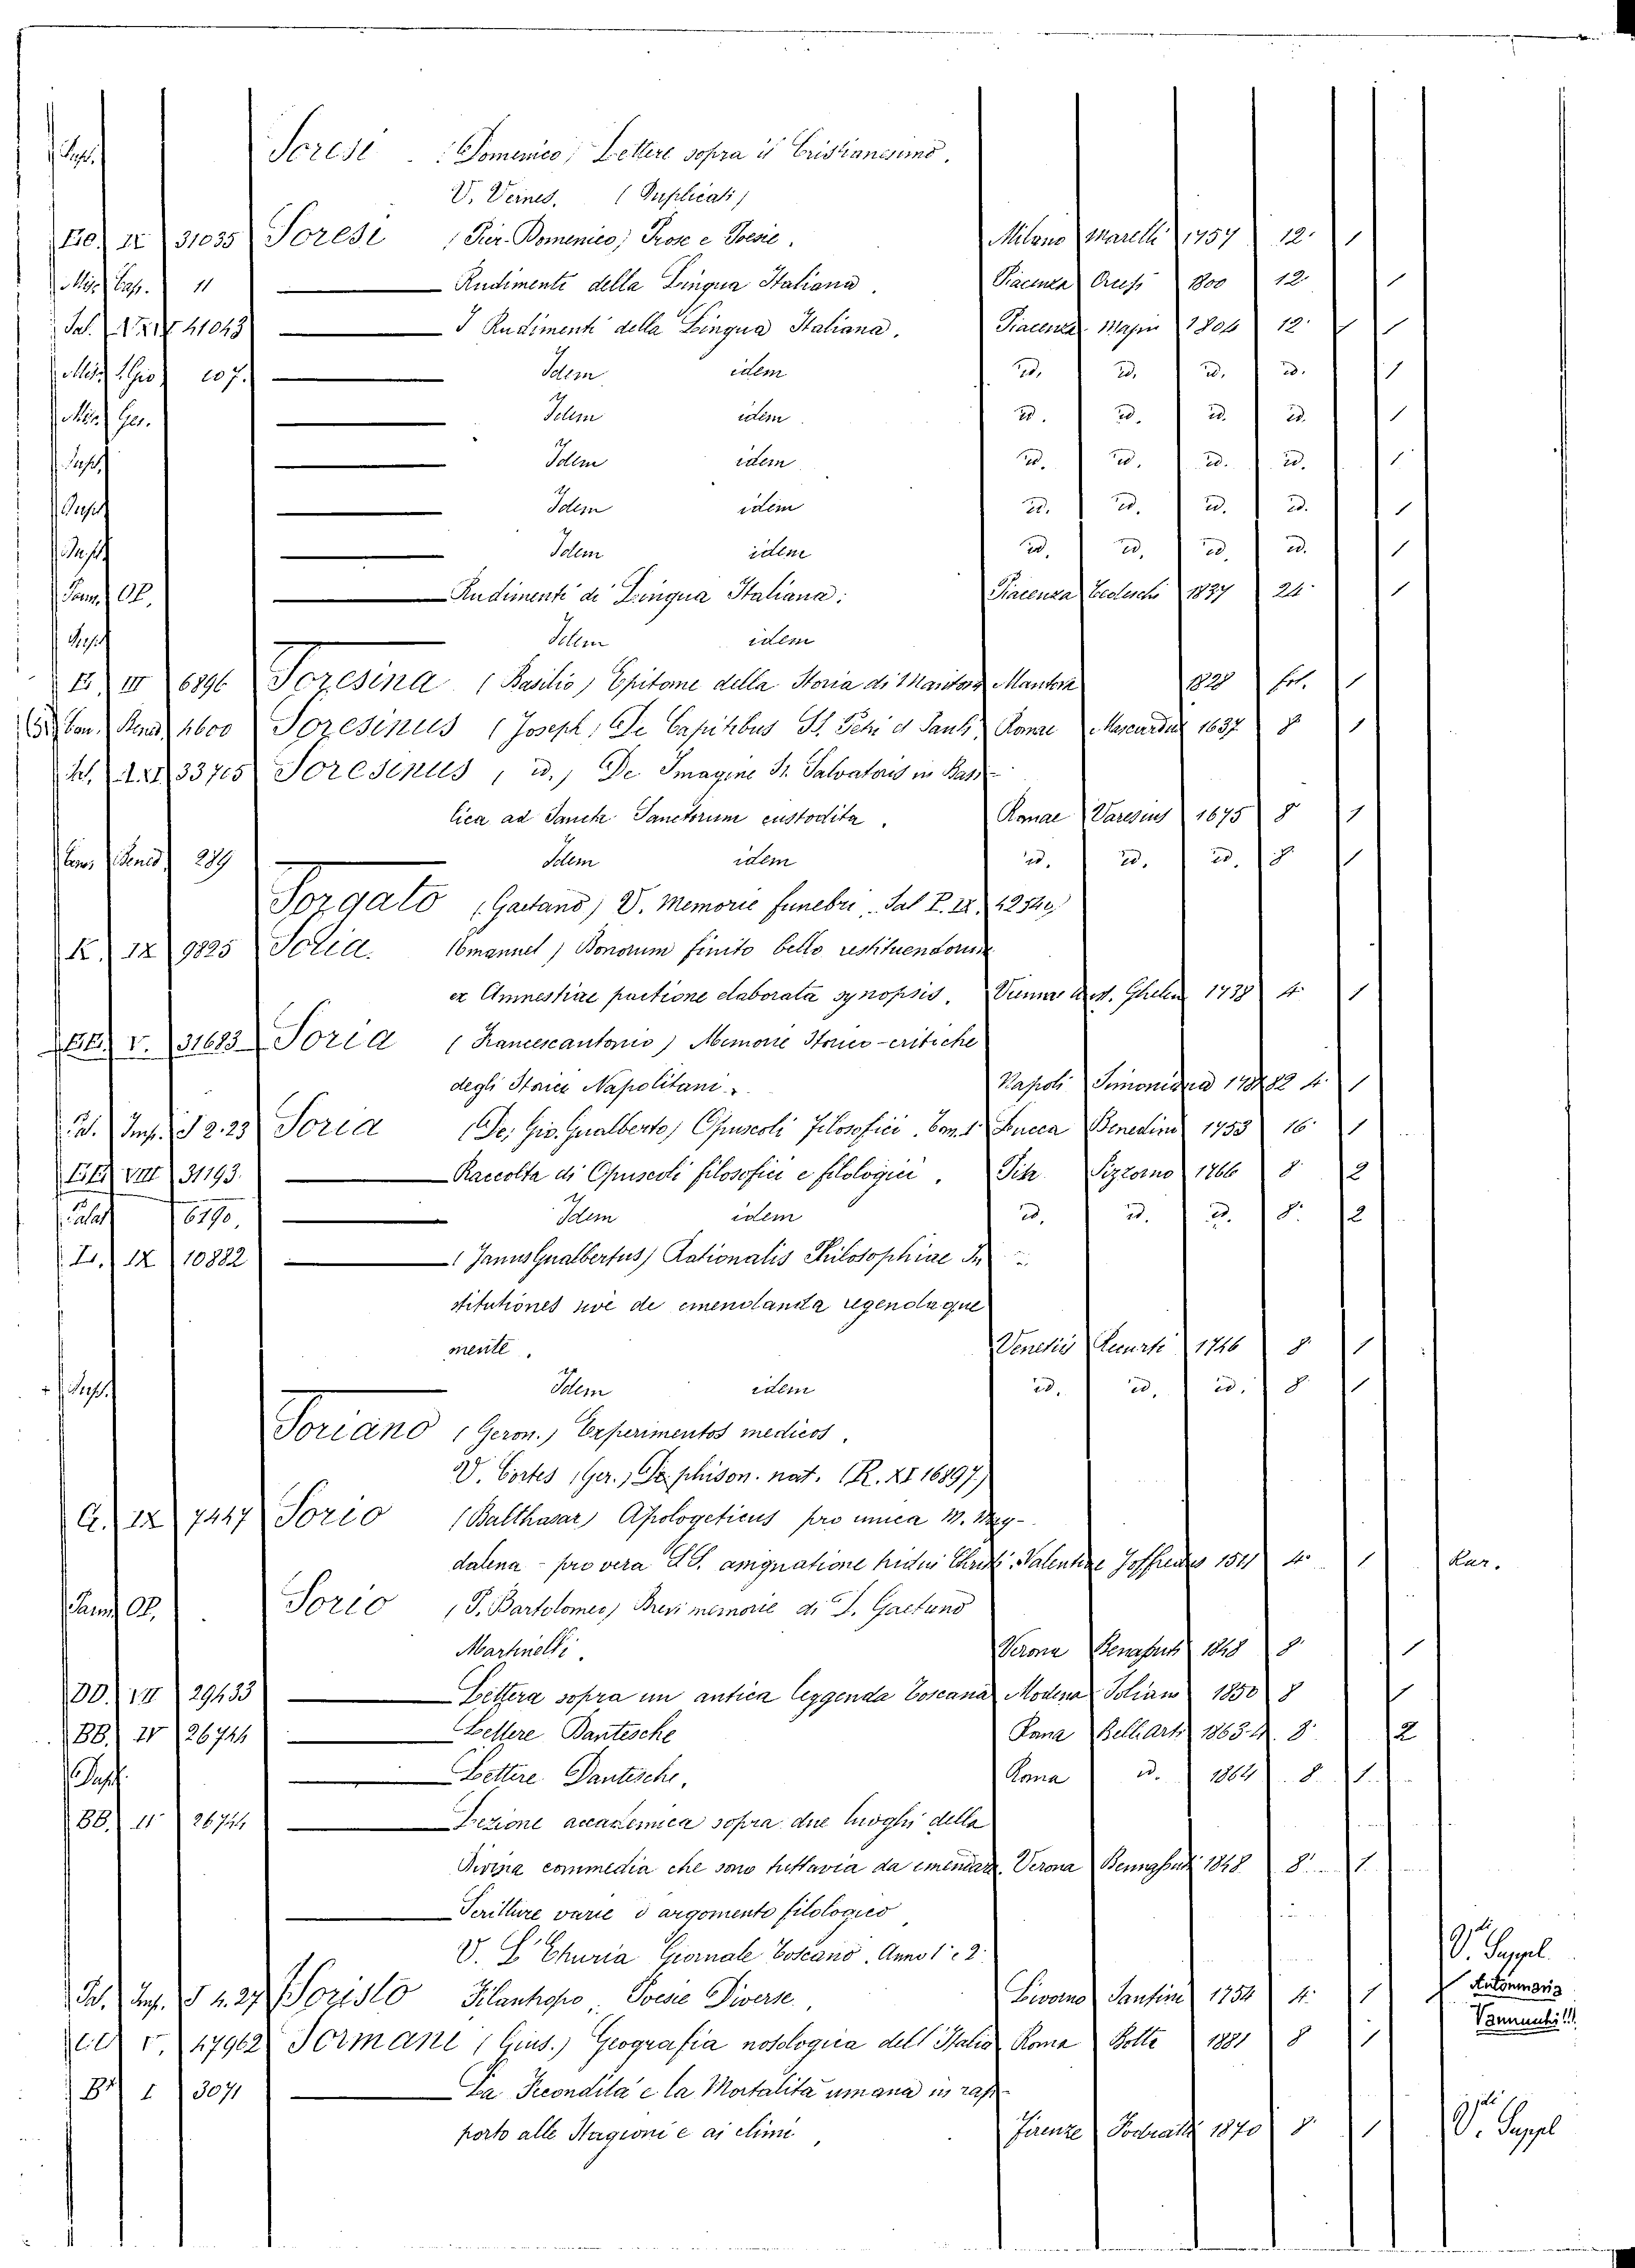 Dupl. Soresi (Domenico) Lettere sopra il Cristianesimo.
V. Vernes. (Duplicati)
EE. IX 31035 Soresi (Pier-Domenico) Prose e Poesie. Milano Marelli 1757 12. 1
Misc. Cap. 11 Rudimenti della Lingua Italiana. Piacenza Orcesi 1800 12. 1
Sal. 41043 I Rudimenti della Lingua Italiana. Piacenza Majni 1804 12. 1
Misc. S. Gio 107. Idem idem id. id. id. id. 1
Misc. Ger. Idem idem id. id. id. id. 1
Dupl. Idem idem id. id. id. id. 1
Dupl. Idem idem id. id. id. id. 1
Dupl. Idem idem id. id. id. id. 1
Pam. OP. Rudimenti di Lingua Italiana. Piacenza Tedeschi 1837 24. 1
Dupl. Idem idem
III 6896 Soresina (Basilio) Epitome della Storia di Mantova Mantova 1828 fol. 1
Con. Bened. 4600 Soresinus (Joseph) De Capitibus SS. Petri et Pauli. Romae Mascardus 1637 8 1
33705 Soresinus, id., De Imagine Sr. Salvatoris in Basi-
lica ad Sancta Sanctorum custodita. Romae Varesius 1675 8 1
Con. Bened. 289 Idem idem id. id. id. 8 1
Sorgato (Gaetano) V. Memorie funebri. Sal P. IX. 42542
K. IX 9825 Soria. Emanuel) Bonorum finito bello restituendorum
ex Amnestiae pactione elaborata synopsis. Viennae Ghelen 1738 4. 1
V. 31683 Soria (Francescantonio) Memorie Storico-critiche
degli Storici Napolitani. Napoli Simoniana 1781-82 4. 1
Id. Imp. S 2.23 Soria (De, Gio. Gualberto) Opuscoli filosofici. Tom. 1 Lucca Benedini 1753 16. 1
EE. VIII 31193. Raccolta di Opuscoli filosofici e filologici. Pisa Pizzorno 1766 8. 2
Palat 6190. Idem idem id. id. id. 8. 2
L. IX 10882 (Janus Gualbertus) Rationalis Philosophiae In-
stitutiones sive de emendanda regendaque
mente. Venetiis Recurti 1746 8. 1
Dupl. Idem idem id. id. id. 8 1
Soriano (Geron.) Experimentos medicos.
V. Cortes (Ger.) De phison. nat. (R. XI 16897)
G. IX 7447 Sorio (Balthasar) Apologeticus pro unica M. Mag-
dalena - pro vera SS. Christi. Valentiae Joffredus 1511 4. 1 Rar.
Pam. OP. Sorio (P. Bartolomeo) Brevi memorie di D. Gaetano
Martinelli. Verona Benassuti 1848 8. 1
DD. VII 29433 Lettera sopra un antica leggenda Toscana Modena Soliani 1850 8 1
BB. IV 26744 Lettere Dantesche Roma Bell'arti 1863-4. 8. 2
Dupl. Lettere Dantesche. Roma id. 1864 8. 1
BB. II 26744 Lezione accademica sopra due luoghi della
Divina commedia che sono tuttavia da emendare. Verona Bennassuti 1848 8. 1
Scritture varie d'argomento filologico
V. L'Etruria Giornale Toscano. Anno 1 e 2. V.di Suppel.
Id. Imp. S 4.27 Soristo Filantropo, Poesie Diverse. Livorno Santini 1754 4. 1 Antonmaria Vannucchi!!!
V. 47962 Sormani (Gius.) Geografia nosologica dell'Italia Roma Botta 1881 8 1
I 3071 La Fecondità e la Mortalità umana in rap-
porto alle Stagioni e ai climi Firenze 1870 8. 1 V.di Suppel